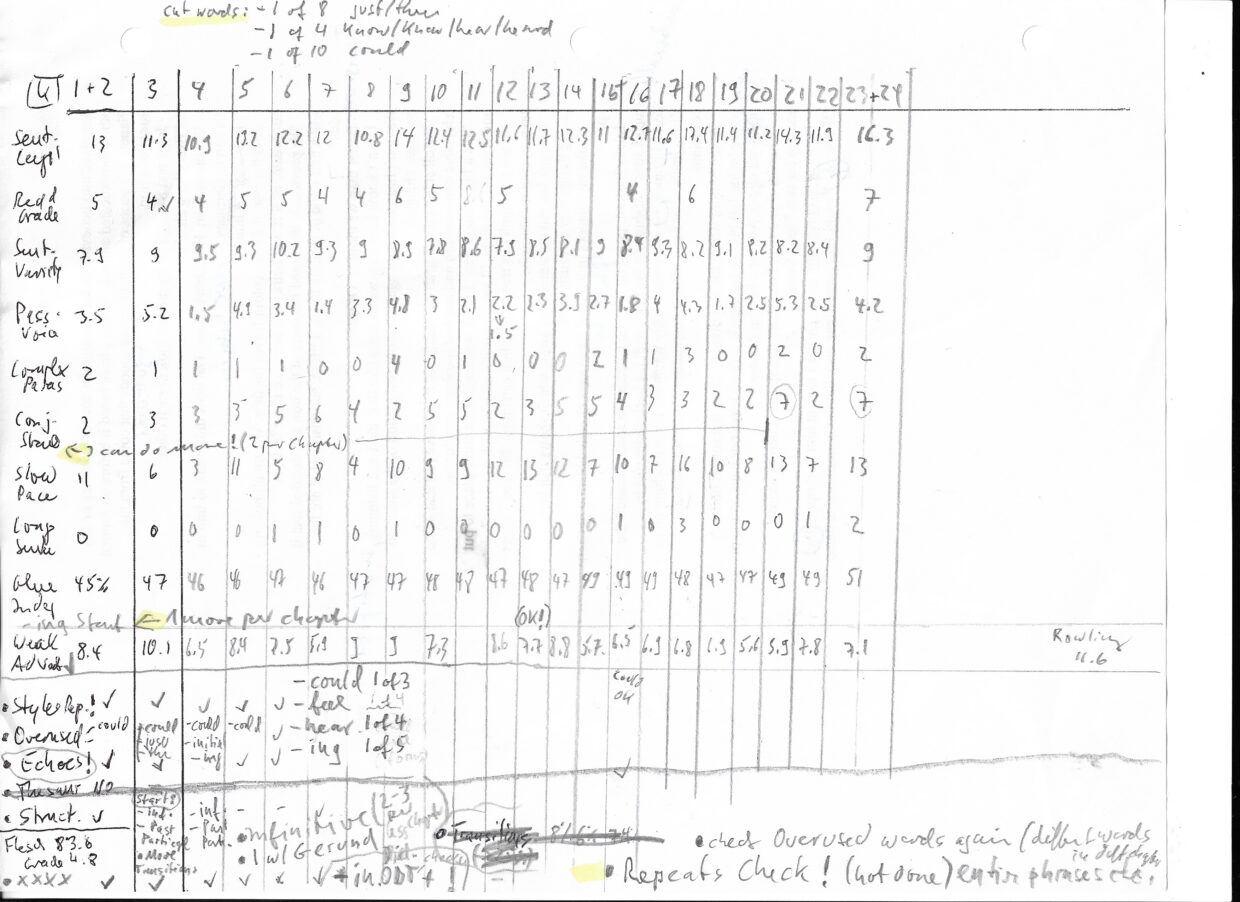 cut words: -1 of 8 just/then
-1 of 4 know/knew/hear/heard
-1 of 10 could
1+2 3 4 5 6 7 8 9 10 11 12 13 14 15 16 17 18 19 20 21 22 23+24
Sent. Length 13 11.3 10.9 12.2 12 10.8 14 12.4 12.5 11.6 11.7 12.3 11 12.7 11.6 11.4 11.2 14.3 11.9 16.3
Read Grade 5 4 4 5 5 4 4 6 5 5 4 6 7
Sent. Variety 7.9 9 9.5 9.3 10.2 9.3 9 8.9 7.8 8.6 7.9 8.5 8.1 9 8.4 9.3 8.2 9.1 8.2 8.2 8.4 9
Pass. Voice 3.5 5.2 1.5 4.9 3.4 1.4 3.3 4.8 3 2.1 2.2 2.3 3.9 2.7 1.8 4 4.3 1.7 2.5 5.3 2.5 4.2
1.5
Complex Paras 2 1 1 1 1 0 0 4 0 1 0 0 0 2 1 1 3 0 0 2 0 2
Conj. Starts 2 3 3 3 5 6 4 2 5 5 2 3 5 5 4 3 3 2 2 7 2 7
← can do more! (2 per chapter)
Slow Pace 11 6 3 11 5 8 4 10 9 9 12 13 12 7 10 7 16 10 8 13 7 13
Long Sent. 0 0 0 0 1 1 0 1 0 0 0 0 0 0 1 0 3 0 0 0 1 2
Glue Index 45% 47 46 46 47 46 47 47 48 48 47 48 47 49 49 49 48 47 47 49 49 51
-ing Start ← 1 more per chapter (OK!)
Weak Adverbs 8.4 10.1 6.5 8.4 7.5 5.9 9 9 7.3 8.6 7.7 8.8 5.7 6.5 6.9 6.8 6.9 5.6 5.9 7.8 7.1 Rowling
11.6
-could 1 of 3 could OK
• Style Rep.! ✓ ✓ ✓ ✓ ✓ -feel
• Overused -could -could -could -could ✓ -hear 1 of 4
-just -ing 1 of 5
• Echoes! ✓ ✓ -ing ✓ ✓
• Thesaur NO
• Struct. ✓ Starts -inf. - - ✓
-ind. -Past Part.
-Past Participle
• More Transitions
• Infinitive (2-3 per chapter)
• 1 w/ Gerund
+ in. ODT + !
• Transitions
Flesch 83.6
Grade 4.8
• XXXX ✓ ✓ ✓ ✓ x ✓
• check Overused words again (different words
• Repeats Check! (not done) entire phrases etc.